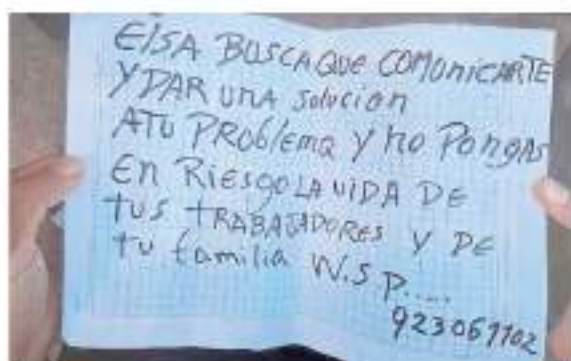 ElSA BUSCA QUE COMUNICARTE
Y DAR UNA Solucion
A TU PROblema y no PongAS
En RIESGO LA VIDA DE
tus tRABAJADORES y DE
tu familia W.S P.....
923061102